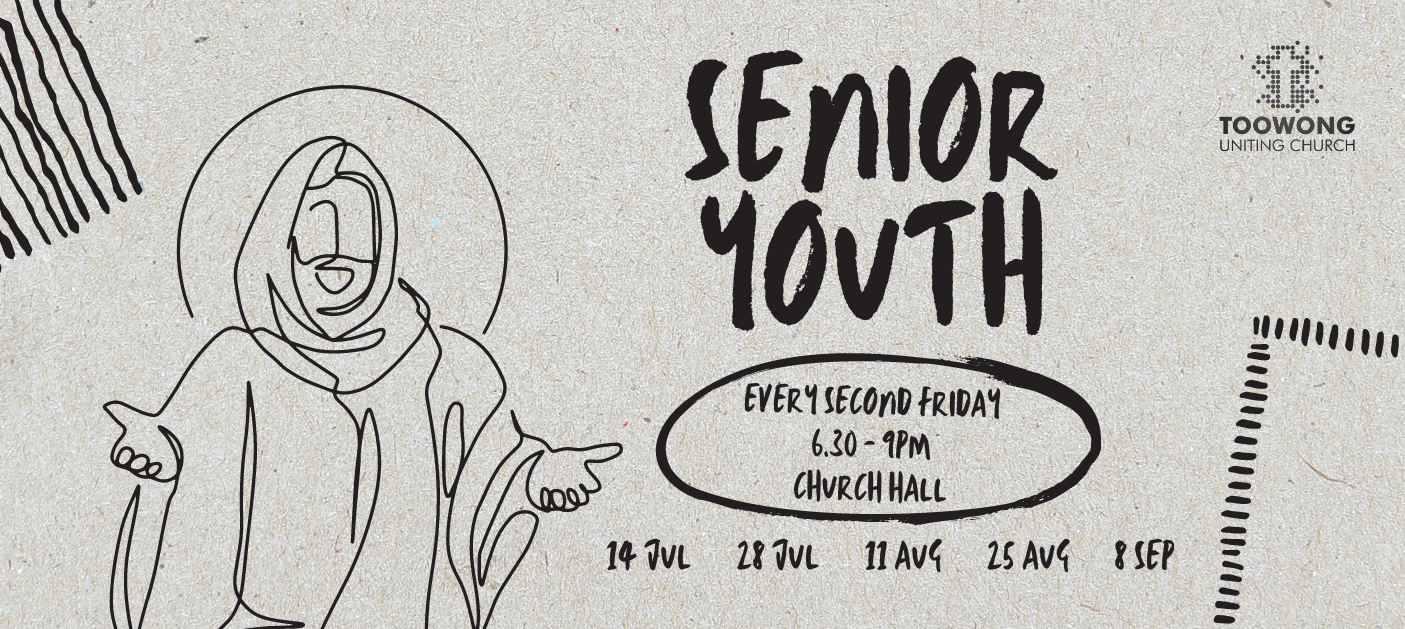 SENIOR
YOUTH
TOOWONG
UNITING CHURCH
EVERY SECOND FRIDAY
6.30 - 9PM
CHURCH HALL
14 JUL 28 JUL 11 AUG 25 AUG 8 SEP